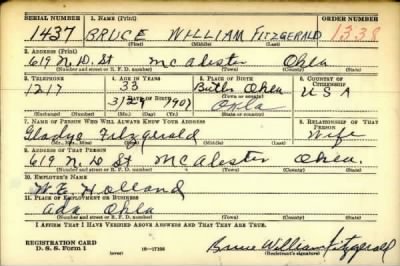 SERIAL NUMBER 1. NAME (Print) ORDER NUMBER
1437 BRUCE WILLIAM FITZGERALD 1338
(First) (Middle) (Last)
2. ADDRESS (Print)
619 N. D. St McAlester Okla
(Number and street or R. F. D. number) (Town) (County) (State)
3. TELEPHONE 4. AGE IN YEARS 5. PLACE OF BIRTH 6. COUNTRY OF CITIZENSHIP
1217 33 Butler Okla U S A
DATE OF BIRTH (Town or county)
1907 Okla
(Mo.) (Day) (Yr.) (State or country)
7. NAME OF PERSON WHO WILL ALWAYS KNOW YOUR ADDRESS 8. RELATIONSHIP OF THAT PERSON
Gladys Fitzgerald Wife
(Mr., Mrs., Miss) (First) (Middle) (Last)
9. ADDRESS OF THAT PERSON
619 N. D St McAlester Okla.
(Number and street or R. F. D. number) (Town) (County) (State)
10. EMPLOYER'S NAME
W. E. Holland
11. PLACE OF EMPLOYMENT OR BUSINESS
Ada Okla
(Number and street or R. F. D. number) (Town) (County) (State)
I AFFIRM THAT I HAVE VERIFIED ABOVE ANSWERS AND THAT THEY ARE TRUE.
REGISTRATION CARD
D. S. S. Form 1 Bruce William Fitzgerald
(Registrant's signature)